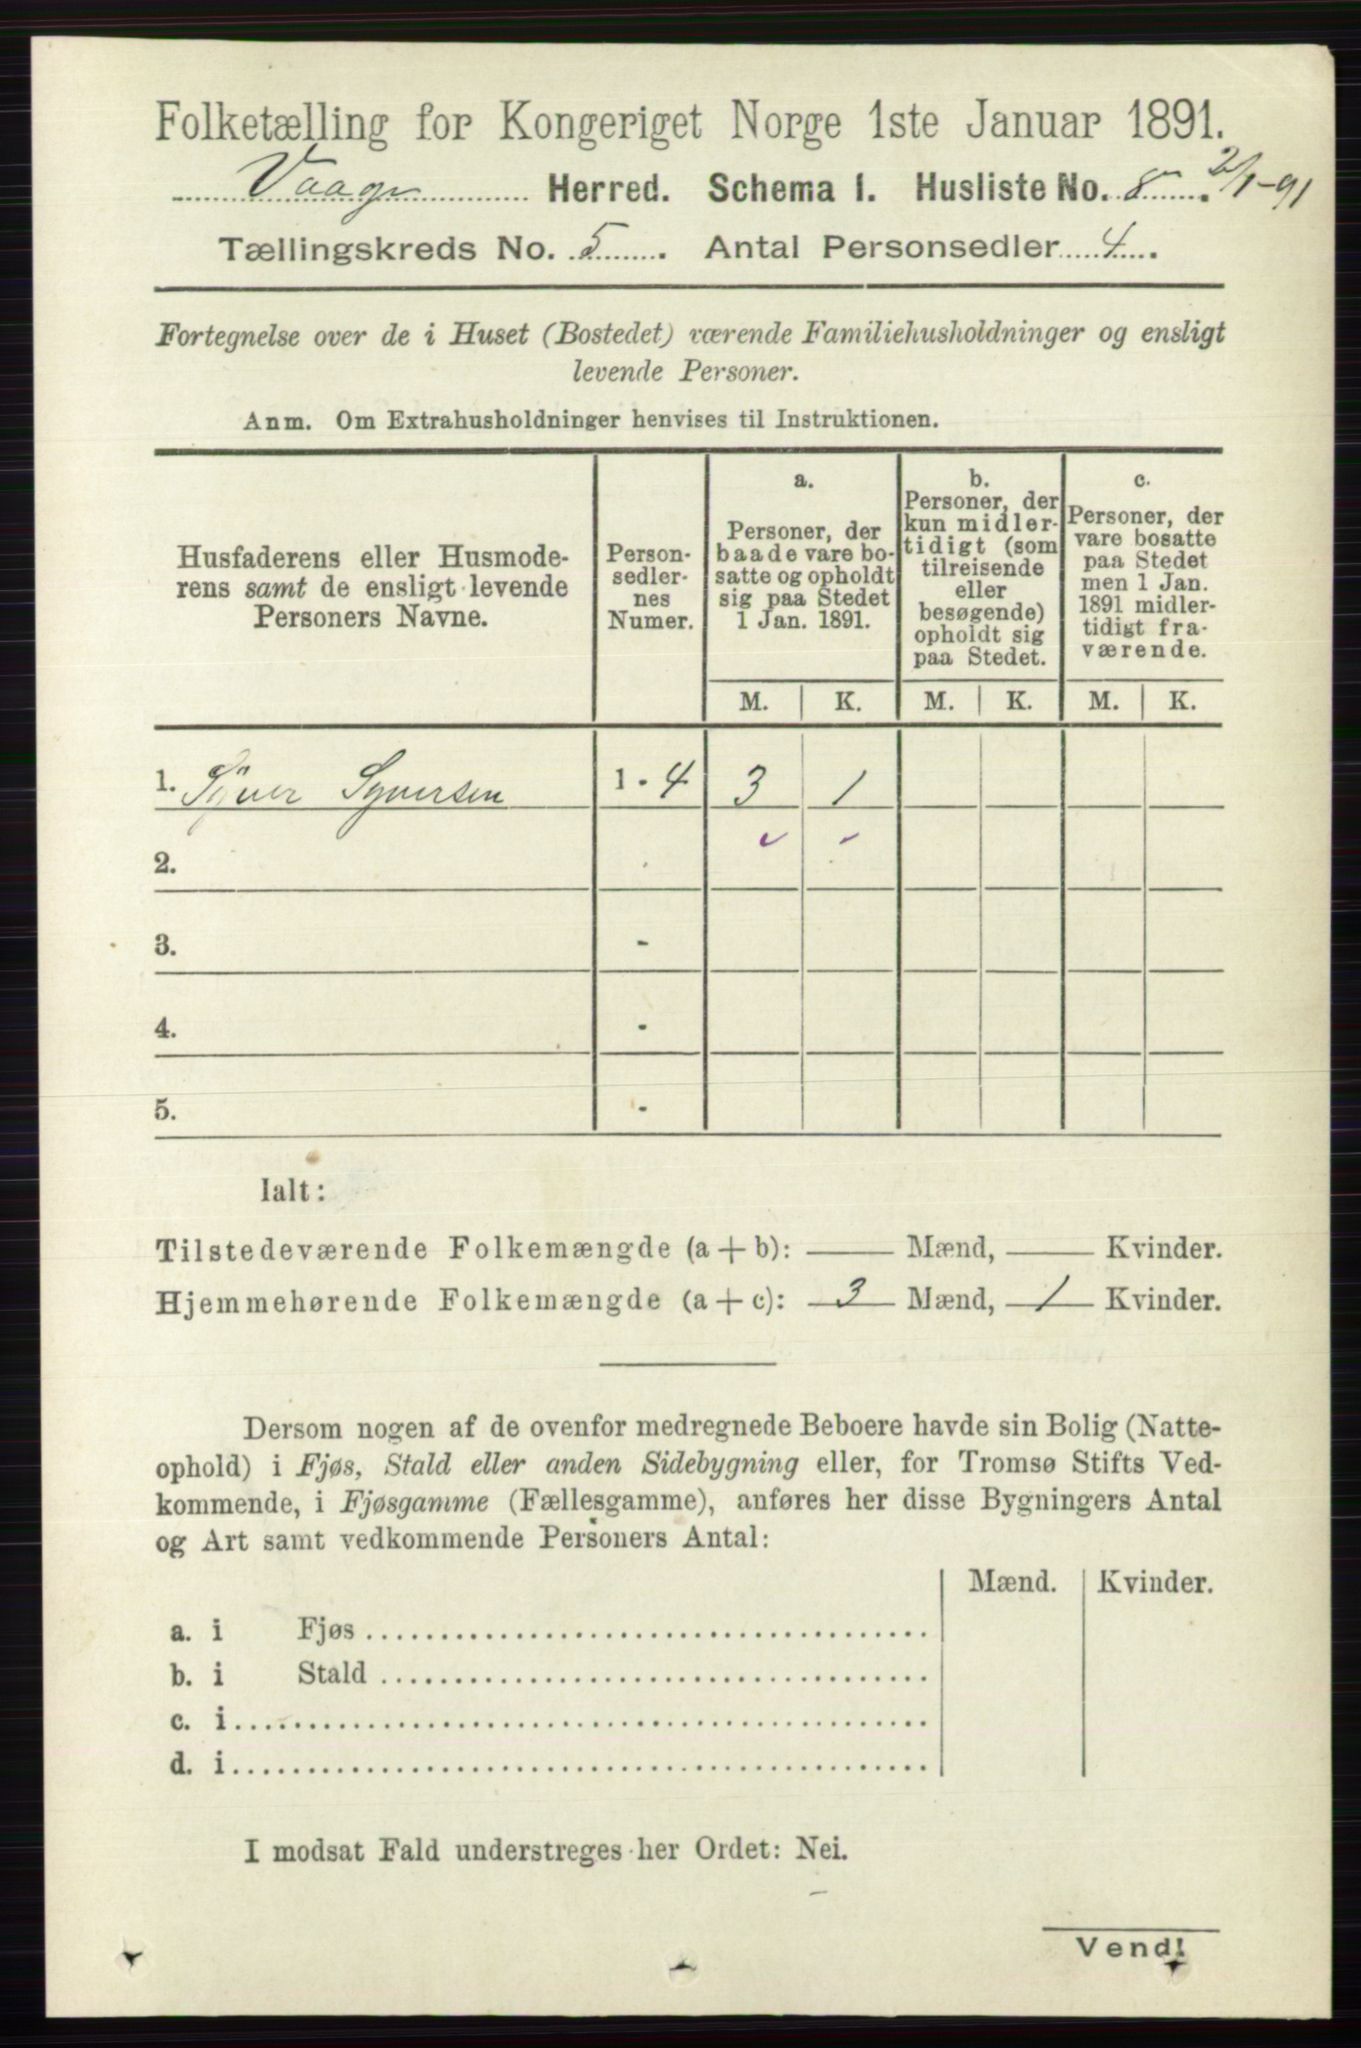 Folketælling for Kongeriget Norge 1ste Januar 1891.
Vaage Herred. Schema 1. Husliste No. 8. 2/1-91
Tællingskreds No. 5. Antal Personsedler 4.
Fortegnelse over de i Huset (Bostedet) værende Familiehusholdninger og ensligt
levende Personer.
Anm. Om Extrahusholdninger henvises til Instruktionen.
Husfaderens eller Husmode-
rens samt de ensligt levende
Personers Navne.
Person-
sedler-
nes
Numer.
a.
Personer, der
baade vare bo-
satte og opholdt
sig paa Stedet
1 Jan. 1891.
b.
Personer, der
kun midler-
tidigt (som
tilreisende
eller
besøgende)
opholdt sig
paa Stedet.
c.
Personer, der
vare bosatte
paa Stedet
men 1 Jan.
1891 midler-
tidigt fra-
værende.
M. K. M. K. M. K.
1. Syver Syversen 1 - 4 3 1
2.
3. -
4. -
5. -
Ialt:
Tilstedeværende Folkemængde (a + b): Mænd, Kvinder.
Hjemmehørende Folkemængde (a + c): 3 Mænd, 1 Kvinder.
Dersom nogen af de ovenfor medregnede Beboere havde sin Bolig (Natte-
ophold) i Fjøs, Stald eller anden Sidebygning eller, for Tromsø Stifts Ved-
kommende, i Fjøsgamme (Fællesgamme), anføres her disse Bygningers Antal
og Art samt vedkommende Personers Antal:
Mænd. Kvinder.
a. i Fjøs
b. i Stald
c. i
d. i
I modsat Fald understreges her Ordet: Nei.
Vend!